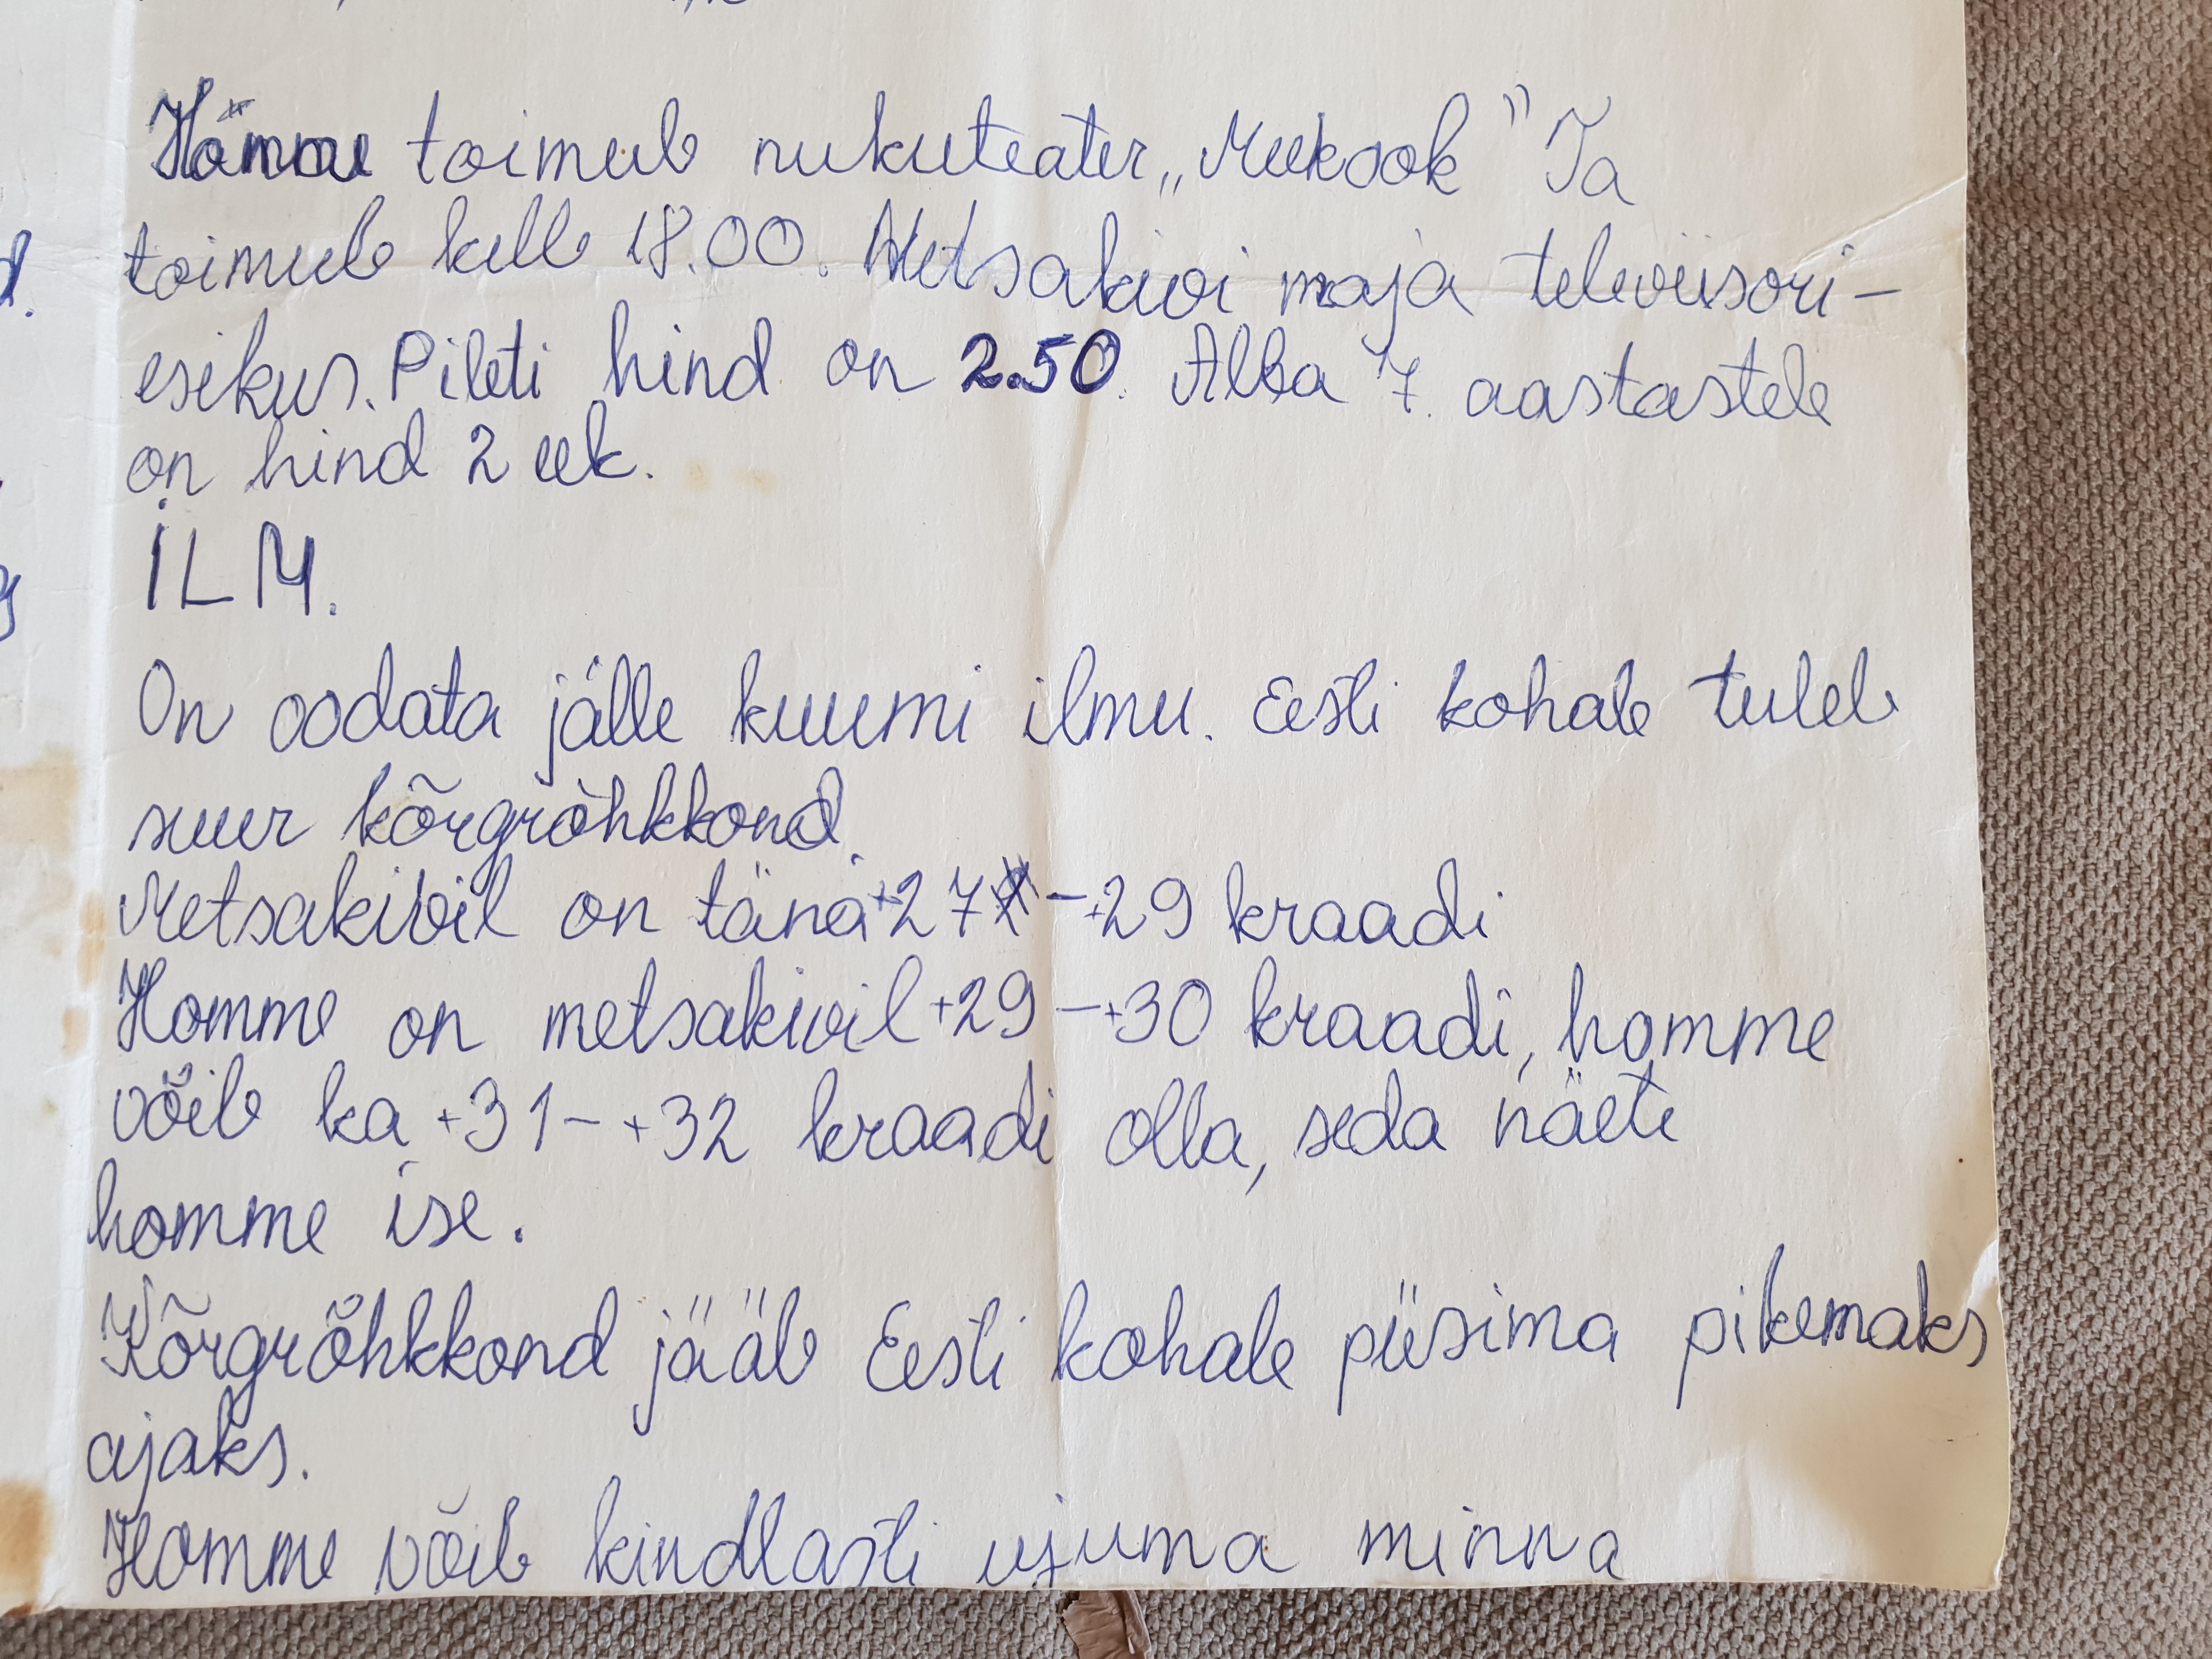 toimub nukuteater „Meekook" Ta
toimub kell 18.00. Metsakivi maja televiisori-
esikus. Pileti hind on 2.50. Alla 7. aastastele
on hind 2 eek.
ILM.
On oodata jälle kuumi ilmu. Eesti kohale tuleb
suur kõrgrõhkkond.
Metsakivil on täna +27 - +29 kraadi
Homme on metsakivil +29 - +30 kraadi, homme
võib ka +31 - +32 kraadi olla, seda näete
homme ise.
Kõrgrõhkkond jääb Eesti kohale püsima pikemaks
ajaks.
Homme võib kindlasti ujuma minna